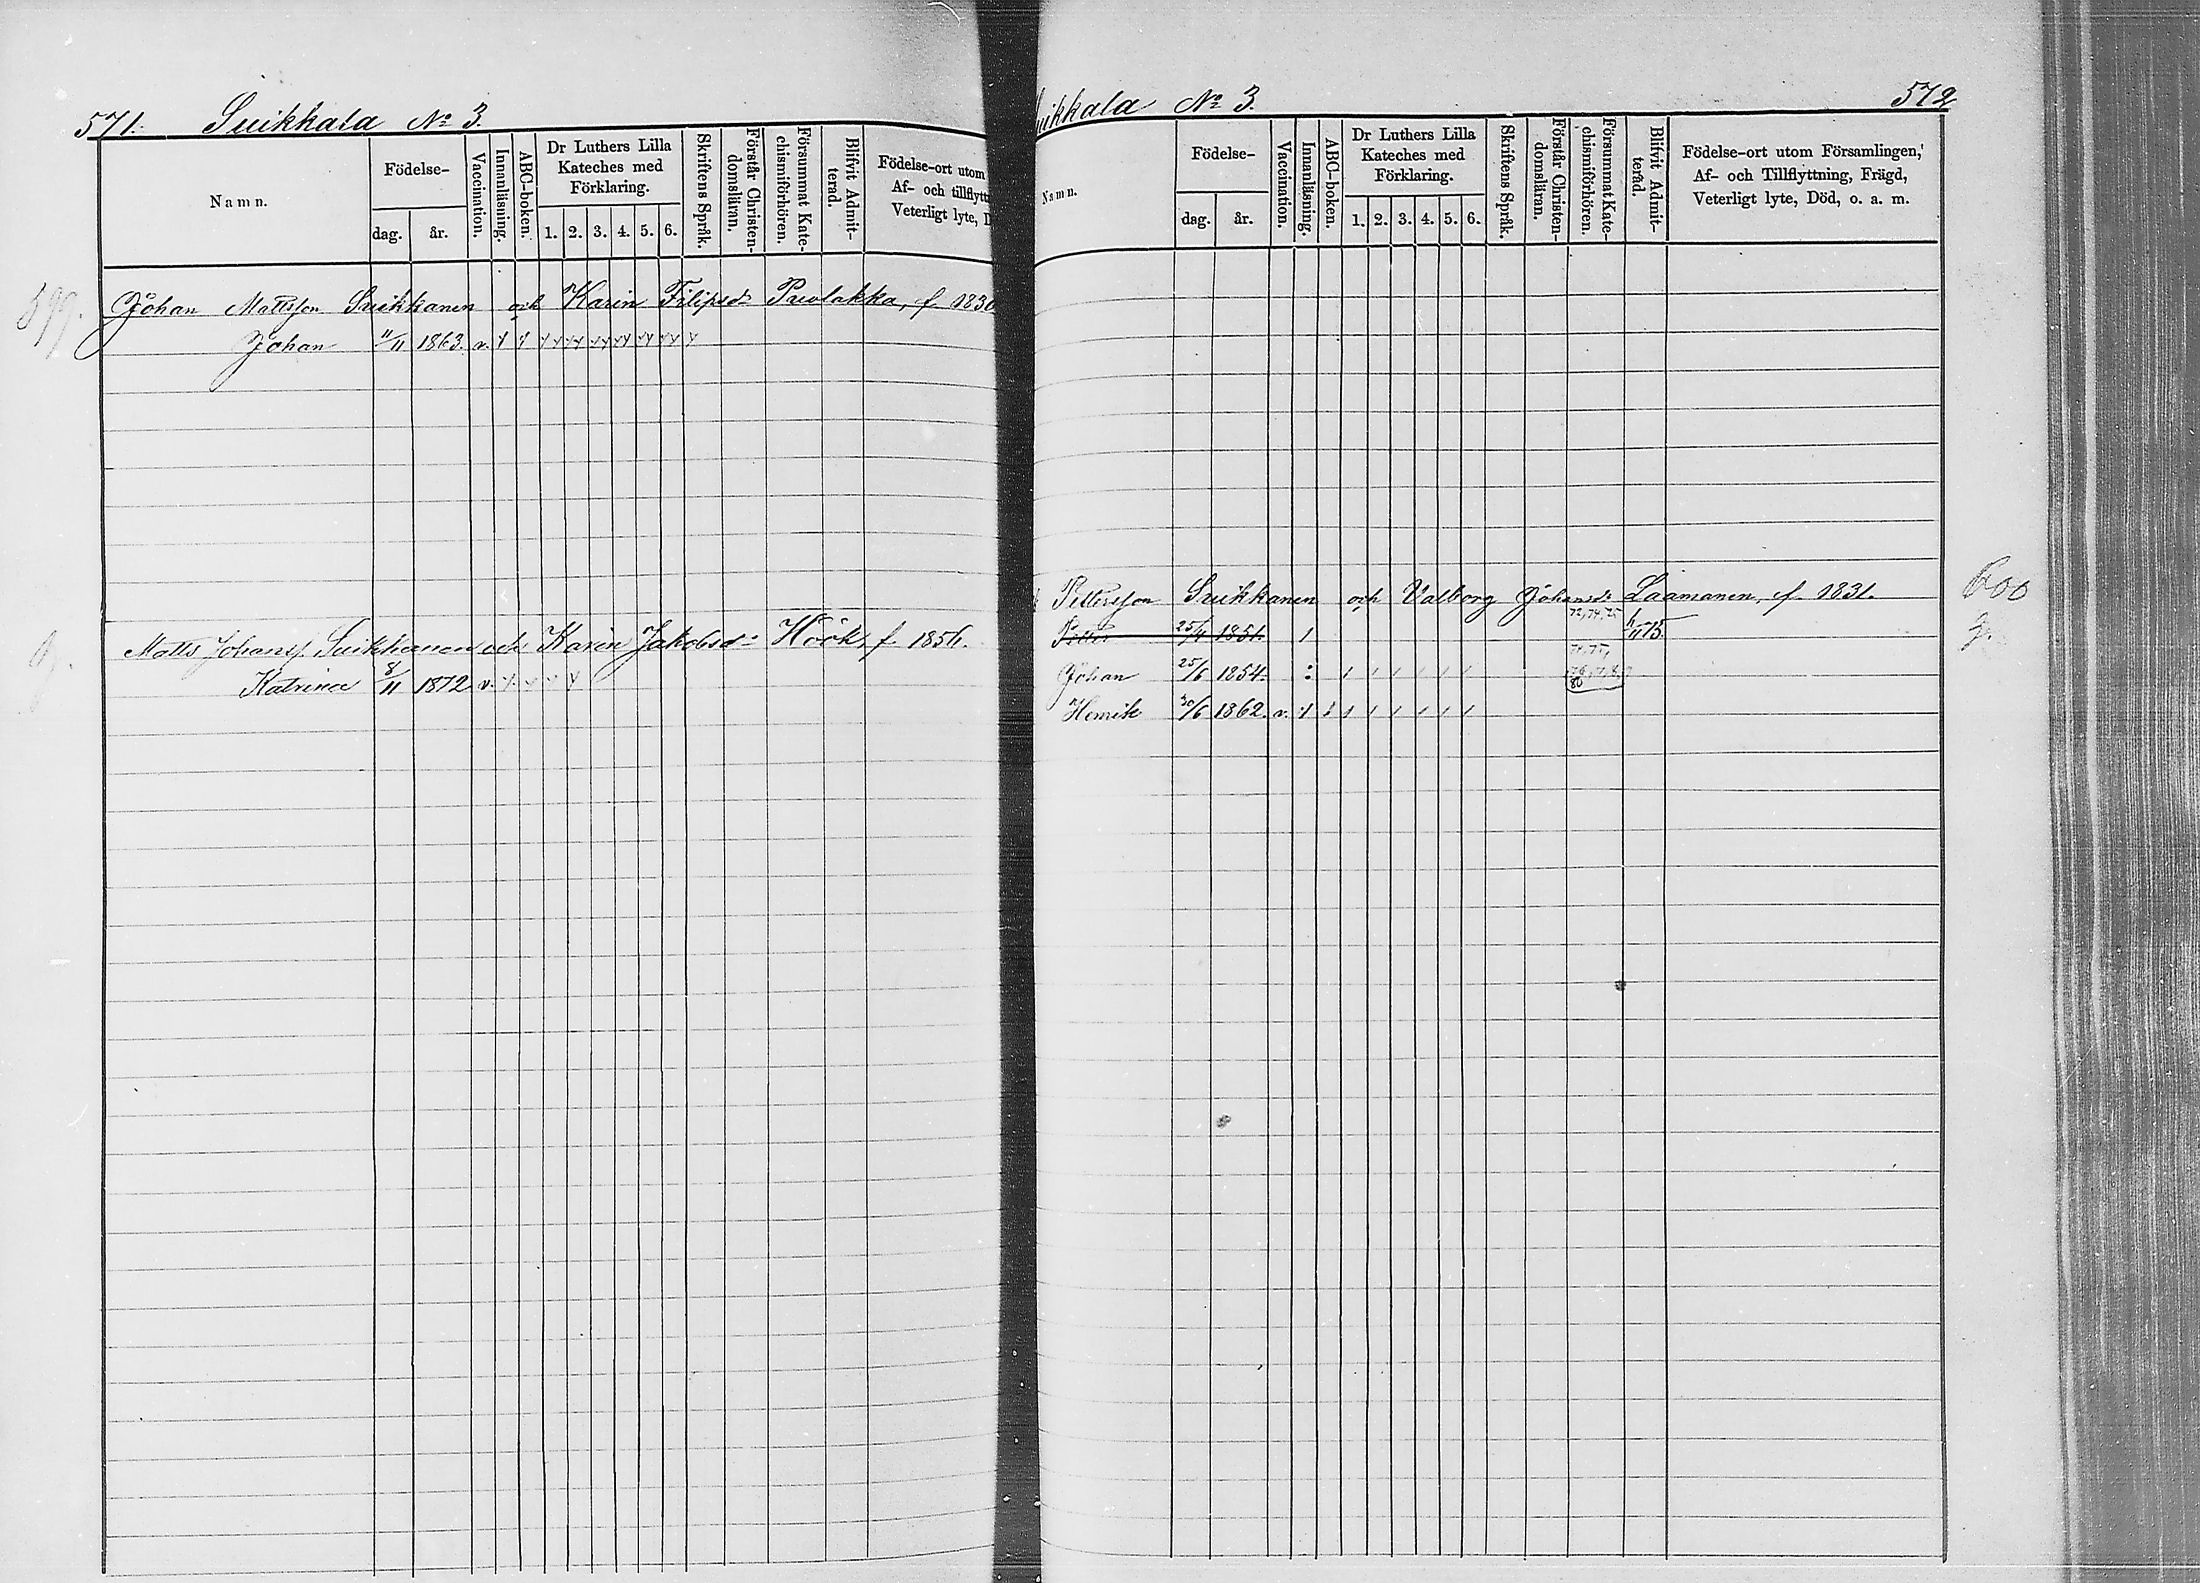 571. Suikkala No 3.
Namn.
Födelse-
dag. år.
Vaccination.
Innanläsning.
ABC-boken.
Dr Luthers Lilla
Kateches med
Förklaring.
1. 2. 3. 4. 5. 6.
Skriftens Språk.
Förstår Christen-
domsläran.
Försummat Kate-
chismiförhören.
Blifvit Admit-
terad.
Födelse-ort utom
Af- och tillflytt
Veterligt lyte, D
599. Johan Mattsson Suikkanen och Karin Filipsd:r Puolakka, f. 1830
Johan 11/11 1863. v.
Matts Johanss. Suikkanen och Karin Jakobsd:r Höök, f. 1856.
Katrina 8/11 1872 v.
uikkala No 3. 572
Namn.
Födelse-
dag. år.
Vaccination.
Innanläsning.
ABC-boken.
Dr Luthers Lilla
Kateches med
Förklaring.
1. 2. 3. 4. 5. 6.
Skriftens Språk.
Förstår Christen-
domsläran.
Försummat Kate-
chismiförhören.
Blifvit Admit-
teräd.
Födelse-ort utom Församlingen,
Af- och Tillflyttning, Frägd,
Veterligt lyte, Död, o. a. m.
Pettersson Suikkanen och Valborg Johansd:r Laamanen, f. 1831. 600
Petter 25/4 1851. 73, 74, 75
Johan 25/6 1854. 80
Henrik 30/6 1862. v.